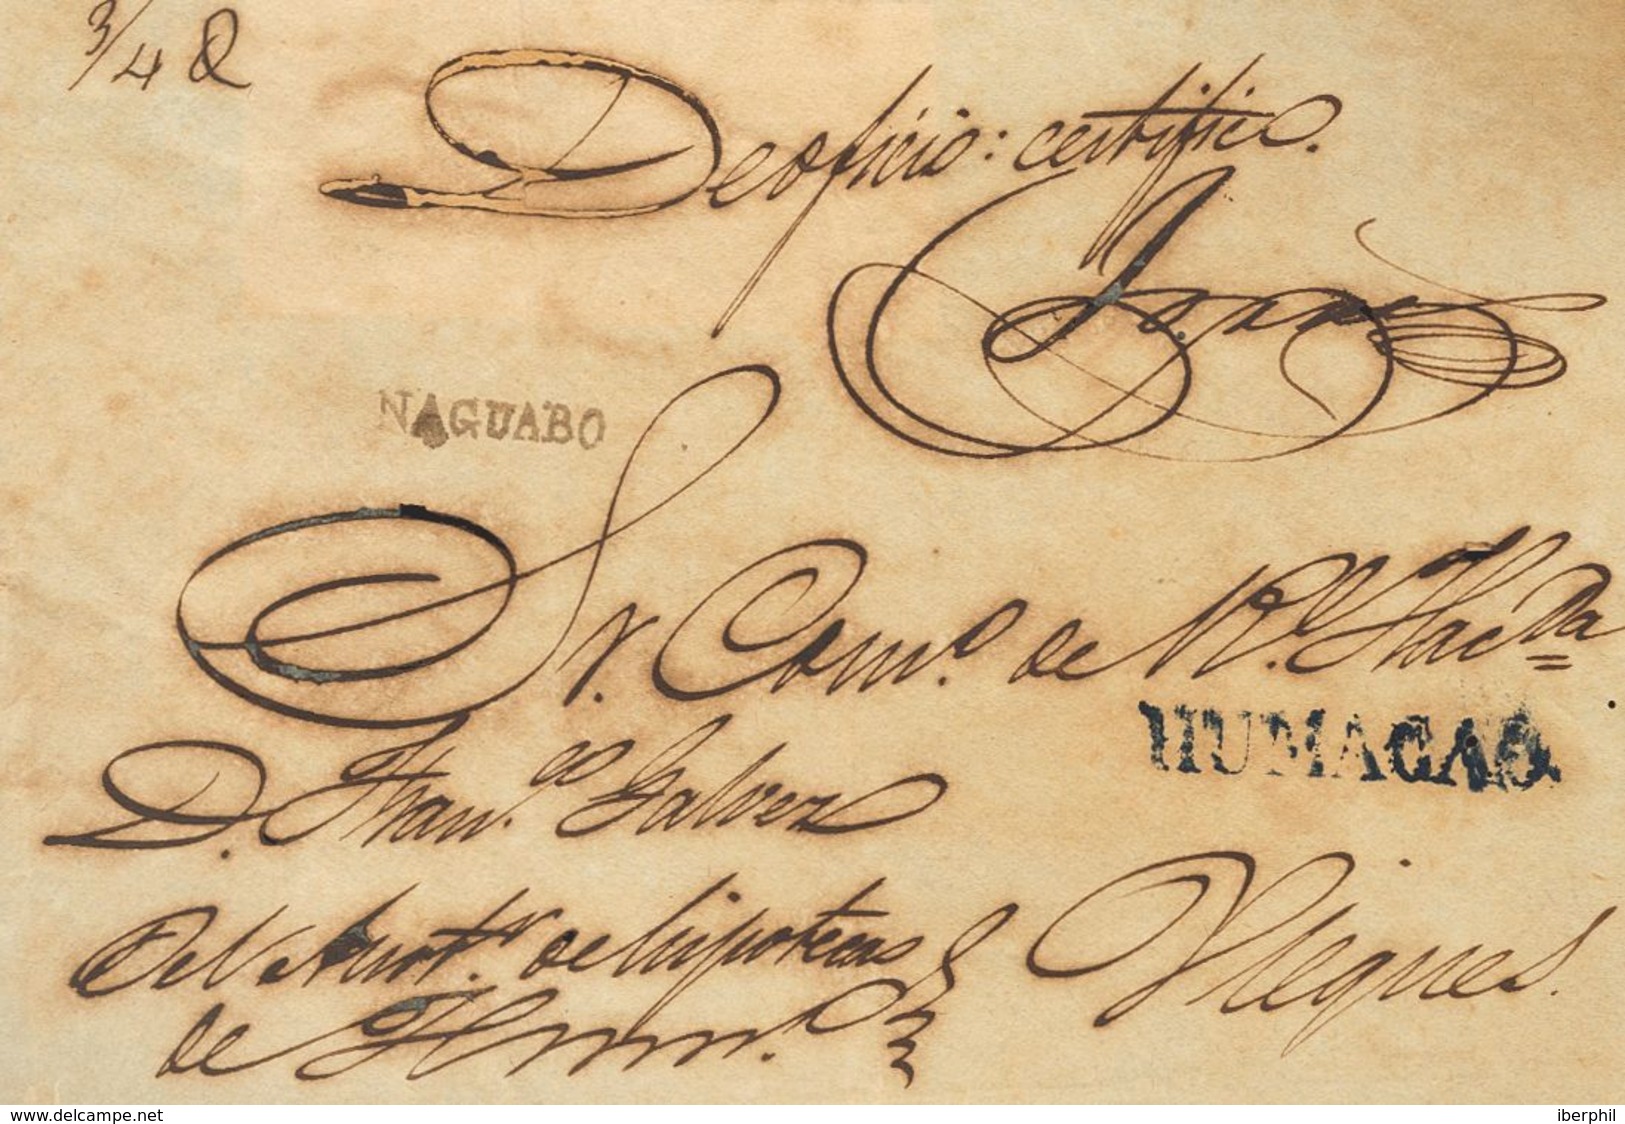 3/4 Q
De oficio: certific.
NAGUABO
Sr. Com.o de Rl. Hacda
HUMACAO.
D. Fran.co Galvez
Del de hipotecas
de Vieques.
www.delcampe.net
iberphil